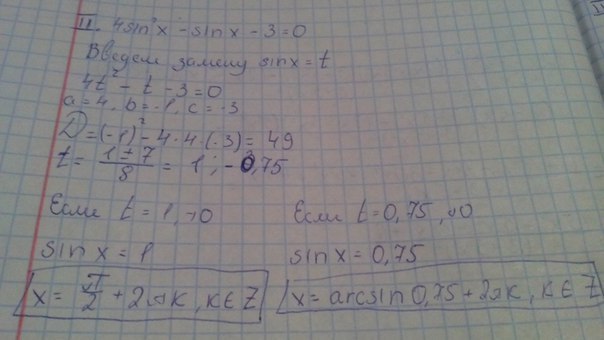 II. 4sin²x - sinx - 3 = 0
Введем замену sinx = t
4t² - t - 3 = 0
a = 4, b = -1, c = -3
D = (-1)² - 4·4·(-3) = 49
t = (1 ± 7)/8 = 1; -0,75
Если t = 1, то
sin x = 1
x = π/2 + 2πk, k∈Z
Если t = 0,75, то
sin x = 0,75
x = arcsin 0,75 + 2πk, k∈Z